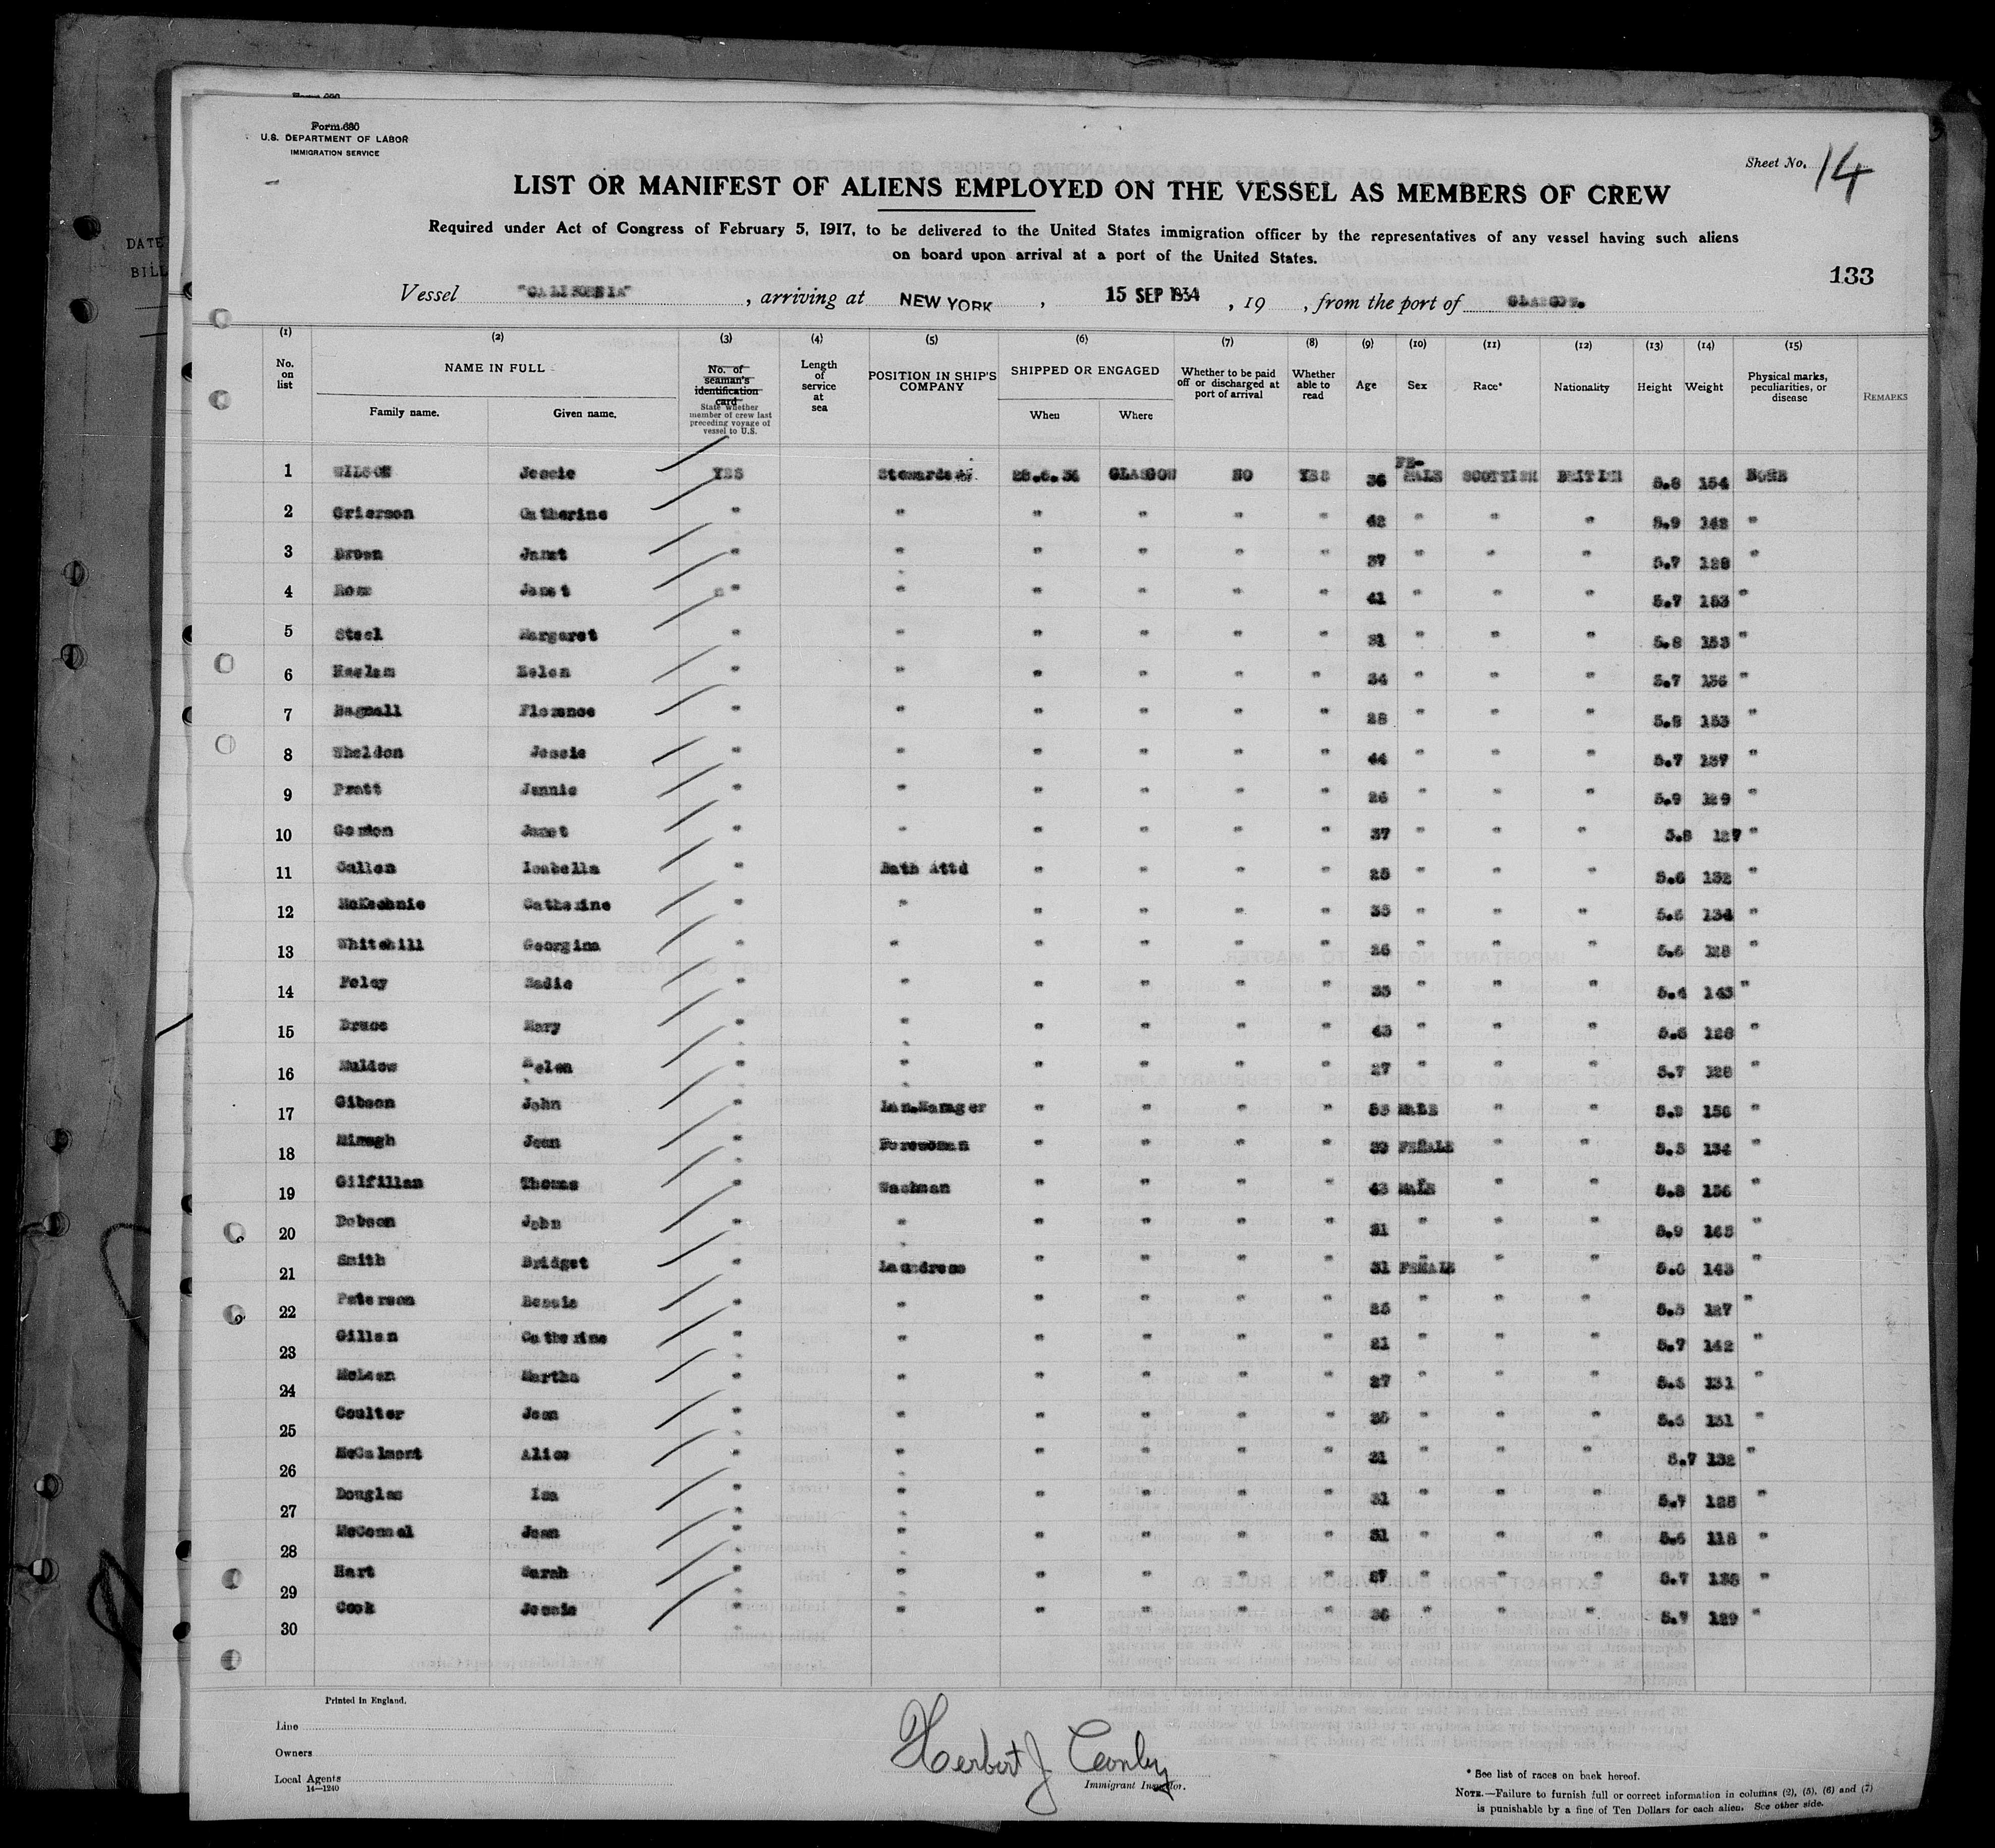 Form 680
U.S. DEPARTMENT OF LABOR
IMMIGRATION SERVICE
Sheet No. 14
LIST OR MANIFEST OF ALIENS EMPLOYED ON THE VESSEL AS MEMBERS OF CREW
Required under Act of Congress of February 5, 1917, to be delivered to the United States immigration officer by the representatives of any vessel having such aliens
on board upon arrival at a port of the United States.
DATE
BILL
133
Vessel "CALIFORNIA", arriving at NEW YORK, 15 SEP 1934, 19 , from the port of GLASGOW.
(1) (2) (3) (4) (5) (6) (7) (8) (9) (10) (11) (12) (13) (14) (15)
No. on list NAME IN FULL Family name. Given name. No. of seaman's identification card State whether member of crew last preceding voyage of vessel to U.S. Length of service at sea POSITION IN SHIP'S COMPANY SHIPPED OR ENGAGED When Where Whether to be paid off or discharged at port of arrival Whether able to read Age Sex Race* Nationality Height Weight Physical marks, peculiarities, or disease REMARKS
1 WILSON Jessie YES Stewardess GLASGOW NO YES 36 FE-MALE SCOTTISH BRITISH 5.8 154 NONE
2 Grierson Catherine " " " " " " 42 " " " 5.9 142 "
3 Brown Janet " " " " " " 37 " " " 5.7 128 "
4 Ross Janet " " " " " " 41 " " " 5.7 153 "
5 Steel Margaret " " " " " " 31 " " " 5.8 153 "
6 Haslam Helen " " " " " " 34 " " " 5.7 136 "
7 Bagnall Florence " " " " " " 28 " " " 153 "
8 Sheldon Jessie " " " " " " 44 " " " 5.7 137 "
9 Pratt Jennie " " " " " " 26 " " " 5.9 129 "
10 Gordon Janet " " " " " " 37 " " " 5.8 127 "
11 Cullen Isabella " Bath Attd " " " " 25 " " " 5.6 132 "
12 McKechnie Catherine " " " " " " 35 " " " 134 "
13 Whitehill Georgina " " " " " " 26 " " " 5.6 128 "
14 Foley Sadie " " " " " " 35 " " " 5.4 143 "
15 Bruce Mary " " " " " " 43 " " " 5.6 128 "
16 Muldow Helen " " " " " " 27 " " " 5.7 128 "
17 Gibson John " Lan.Manager " " " " 53 MALE " " 156 "
18 Jean " Forewoman " " " " 39 FEMALE " " 5.5 134 "
19 Gilfillan Thomas " Washman " " " " 43 MALE " " 5.8 156 "
20 Dobson John " " " " " " 31 " " " 5.9 165 "
21 Smith Bridget " Laundress " " " " 31 FEMALE " " 5.6 143 "
22 Paterson Bessie " " " " " " 25 " " " 5.5 127 "
23 Gillen Catherine " " " " " " 21 " " " 5.7 142 "
24 McLean Martha " " " " " " 27 " " " 131 "
25 Coulter Jean " " " " " " " " " 131 "
26 McCalmont Alice " " " " " " 31 " " " 5.7 132 "
27 Douglas Isa " " " " " " 31 " " " 5.7 128 "
28 McConnel Jean " " " " " " 31 " " " 5.6 118 "
29 Hart Sarah " " " " " " 37 " " " 5.7 138 "
30 Cook Jessie " " " " " " 36 " " " 5.7 129 "
Printed in England.
Line
Owners
Local Agents
14—1240
Herbert J
Immigrant Inspector.
* See list of races on back hereof.
NOTE.—Failure to furnish full or correct information in columns (2), (5), (6) and (7)
is punishable by a fine of Ten Dollars for each alien. See other side.